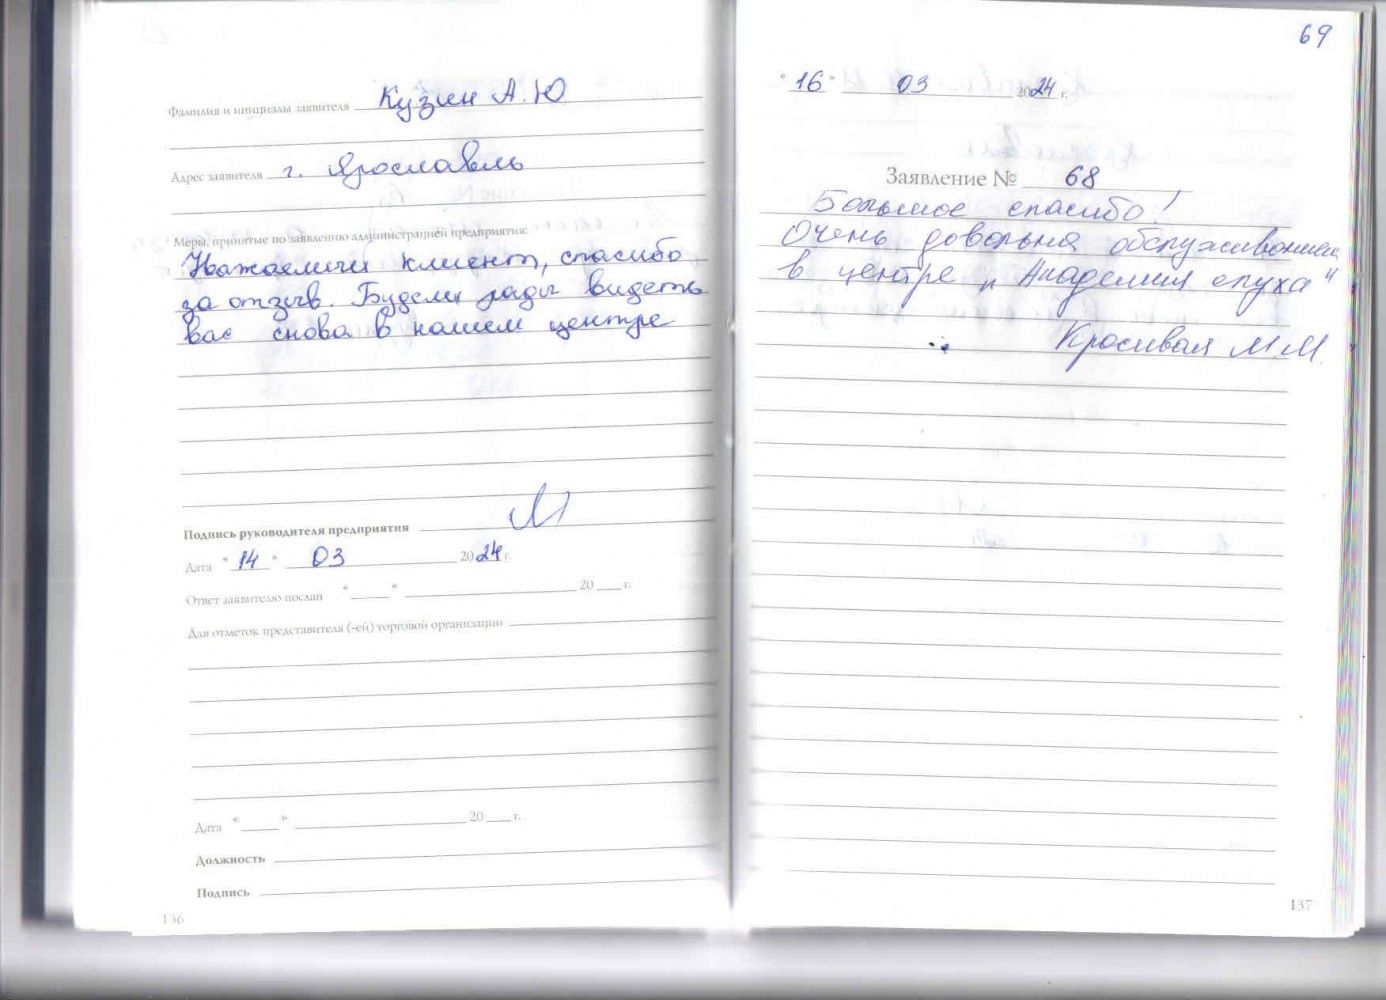 Фамилия и инициалы заявителя Кузин А.Ю
Адрес заявителя г. Ярославль
Меры, принятые по заявлению администрацией предприятия:
Уважаемый клиент, спасибо
за отзыв. Будем рады видеть
вас снова в нашем центре
Подпись руководителя предприятия
Дата "14" 03 2024 г.
Ответ заявителю послан "____" ____ 20 ___ г.
Для отметок представителя (-ей) торговой организации
Дата "____" ____ 20 ___ г.
Должность
Подпись
136
69
"16" 03 2024 г.
Заявление № 68
Большое спасибо!
Очень довольна обслуживанием
в центре „Академия слуха"
Красивая М.М.
137